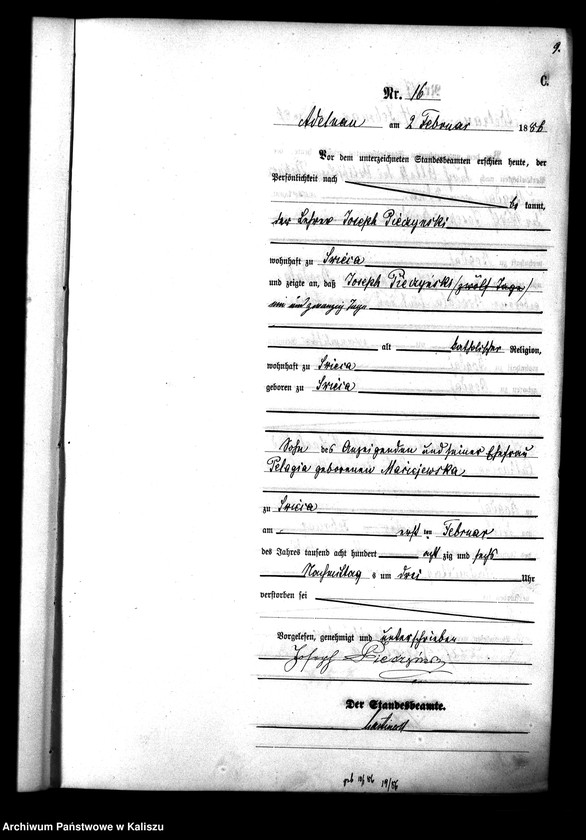 9.
C.
Nr. 16
Adelnau am 2 Februar 1886
Vor dem unterzeichneten Standesbeamten erschien heute, der
Persönlichkeit nach
be kannt,
der Lehrer Joseph Pieczynski
wohnhaft zu Sieća
und zeigte an, daß Joseph Pieczyński /zwölf Tage/
ein und zwanzig Tage
alt katholischer Religion,
wohnhaft zu
geboren zu
Sohn des Anzeigenden und seiner Ehefrau
Pelagia geborenen Maciejewska
zu
am erst ten Februar
des Jahres tausend acht hundert acht zig und sechs
Nachmittag s um drei Uhr
verstorben sei
Vorgelesen, genehmigt und unterschrieben
Joseph Pieczynski
Der Standesbeamte.
19/86
Archiwum Państwowe w Kaliszu